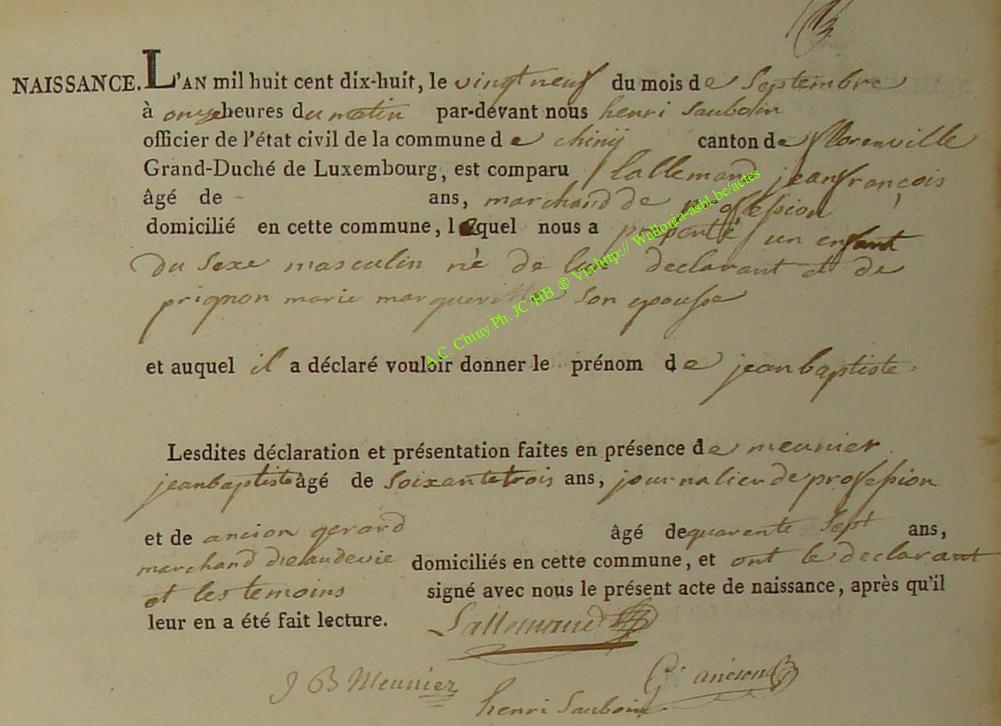 NAISSANCE. L'AN mil huit cent dix-huit, le vingt neuf du mois de Septembre
à onze heures du matin par-devant nous henri Sauboin
officier de l'état civil de la commune de chinÿ canton de florenville
Grand-Duché de Luxembourg, est comparu lallemand jean françois
âgé de - ans, marchand de profession
domicilié en cette commune, lequel nous a presenté un enfant
du sexe masculin né de lui declarant et de
prignon marie margueritte son epouse
et auquel il a déclaré vouloir donner le prénom de jean baptiste
Lesdites déclaration et présentation faites en présence de meunier
jean baptiste âgé de soixante trois ans, journalier de profession
et de ancion gerard âgé de quarente sept ans,
marchand d'eaudevie domiciliés en cette commune, et ont le declarant
et les temoins signé avec nous le présent acte de naissance, après qu'il
leur en a été fait lecture. Lallemand
J B Meunier G ancion
henri Sauboin
A.C. Chiny Ph. JC HB ® Via http:// Wallonia-asbl.be/actes